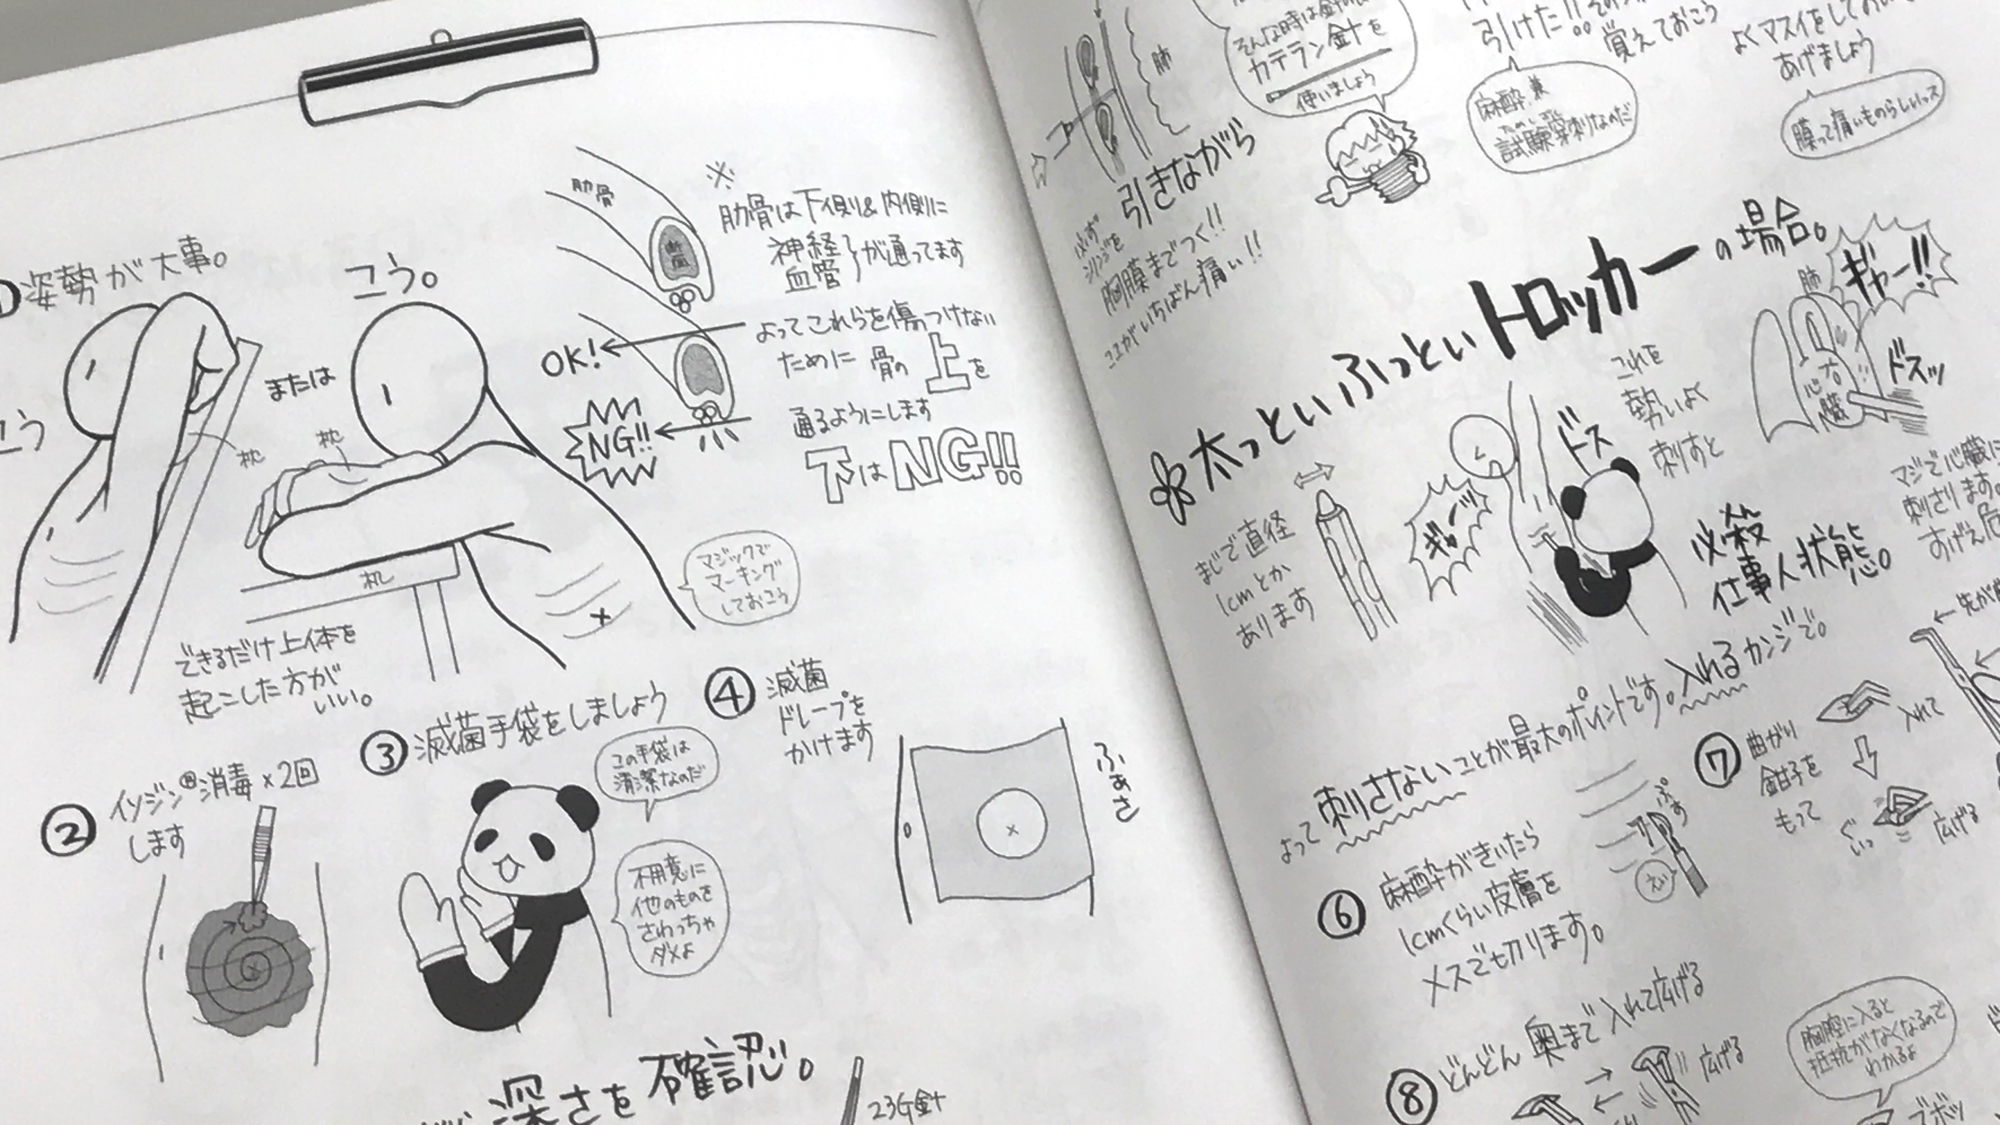 ①姿勢が大事。
こう
枕
または
こう。
枕
机
できるだけ上体を
起こした方が
いい。
肋骨
断面
※
肋骨は下側&内側に
神経
血管
が通ってます
OK!
NG!!
よってこれらを傷つけない
ために骨の上を
通るようにします
下はNG!!
マジックで
マーキング
しておこう
②イソジン®消毒×2回
します
③滅菌手袋をしましょう
この手袋は
清潔なのだ
不用意に
他のものを
さわっちゃ
ダメよ
④滅菌
ドレープを
かけます
ふぁさ
深さを確認。
23G針
肺
そんな時は針
カテラン針を
使いましょう
引きながら
必ず
シリンジを
胸膜までつく!!
ココがいちばん痛い!!
引けた!!
覚えておこう
麻酔兼
ためしざし
試験穿刺なのだ
よくマスイをしておいて
あげましょう
膜って痛いものらしいっス
太っといふっといトロッカーの場合。
まじで直径
1cmとか
あります
ギャーッ
ドス
これを
勢いよく
刺すと
必殺
仕事人状態。
肺
心臓
ギャー!!
ドスッ
マジで心臓に
刺さります。
すげえ危
よって刺さないことが最大のポイントです。入れるカンジで。
⑥麻酔がきいたら
1cmくらい皮膚を
メスで切ります。
えい
⑦曲がり
鉗子を
もって
入れて
ぐいっ
広げる
先が
⑧どんどん奥まで入れて広げる
広げる
胸腔に入ると
抵抗がなくなるので
わかるよ
ズボッ